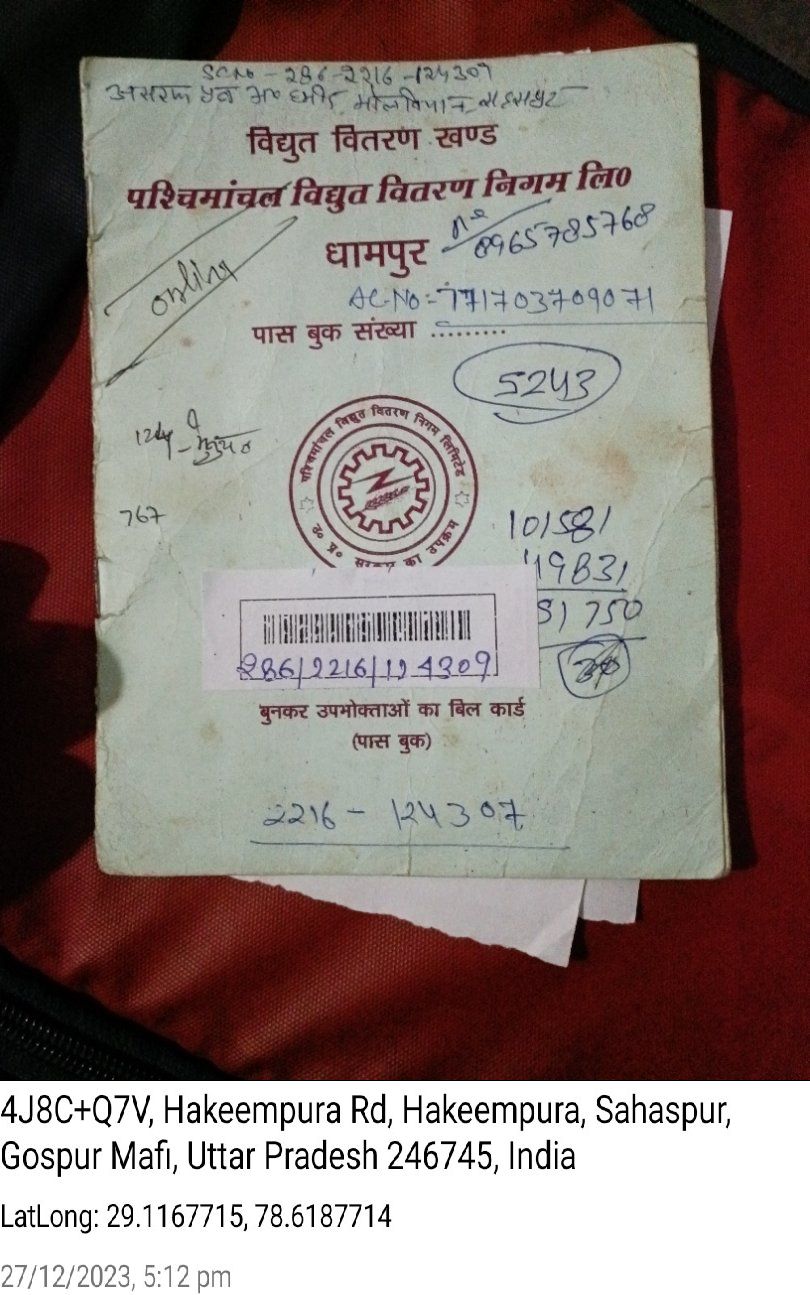 SCNo - 286-2216-124307
विद्युत वितरण खण्ड
पश्चिमांचल विद्युत वितरण निगम लि०
धामपुर
8965785768
online
AC-No:- 771703709071
पास बुक संख्या .........
5243
पश्चिमांचल विद्युत वितरण निगम लिमिटेड
उ० प्र० सरकार का उपक्रम
767
101581
49831
51750
286/2216/124309
बुनकर उपभोक्ताओं का बिल कार्ड
(पास बुक)
2216 - 124307
4J8C+Q7V, Hakeempura Rd, Hakeempura, Sahaspur,
Gospur Mafi, Uttar Pradesh 246745, India
LatLong: 29.1167715, 78.6187714
27/12/2023, 5:12 pm